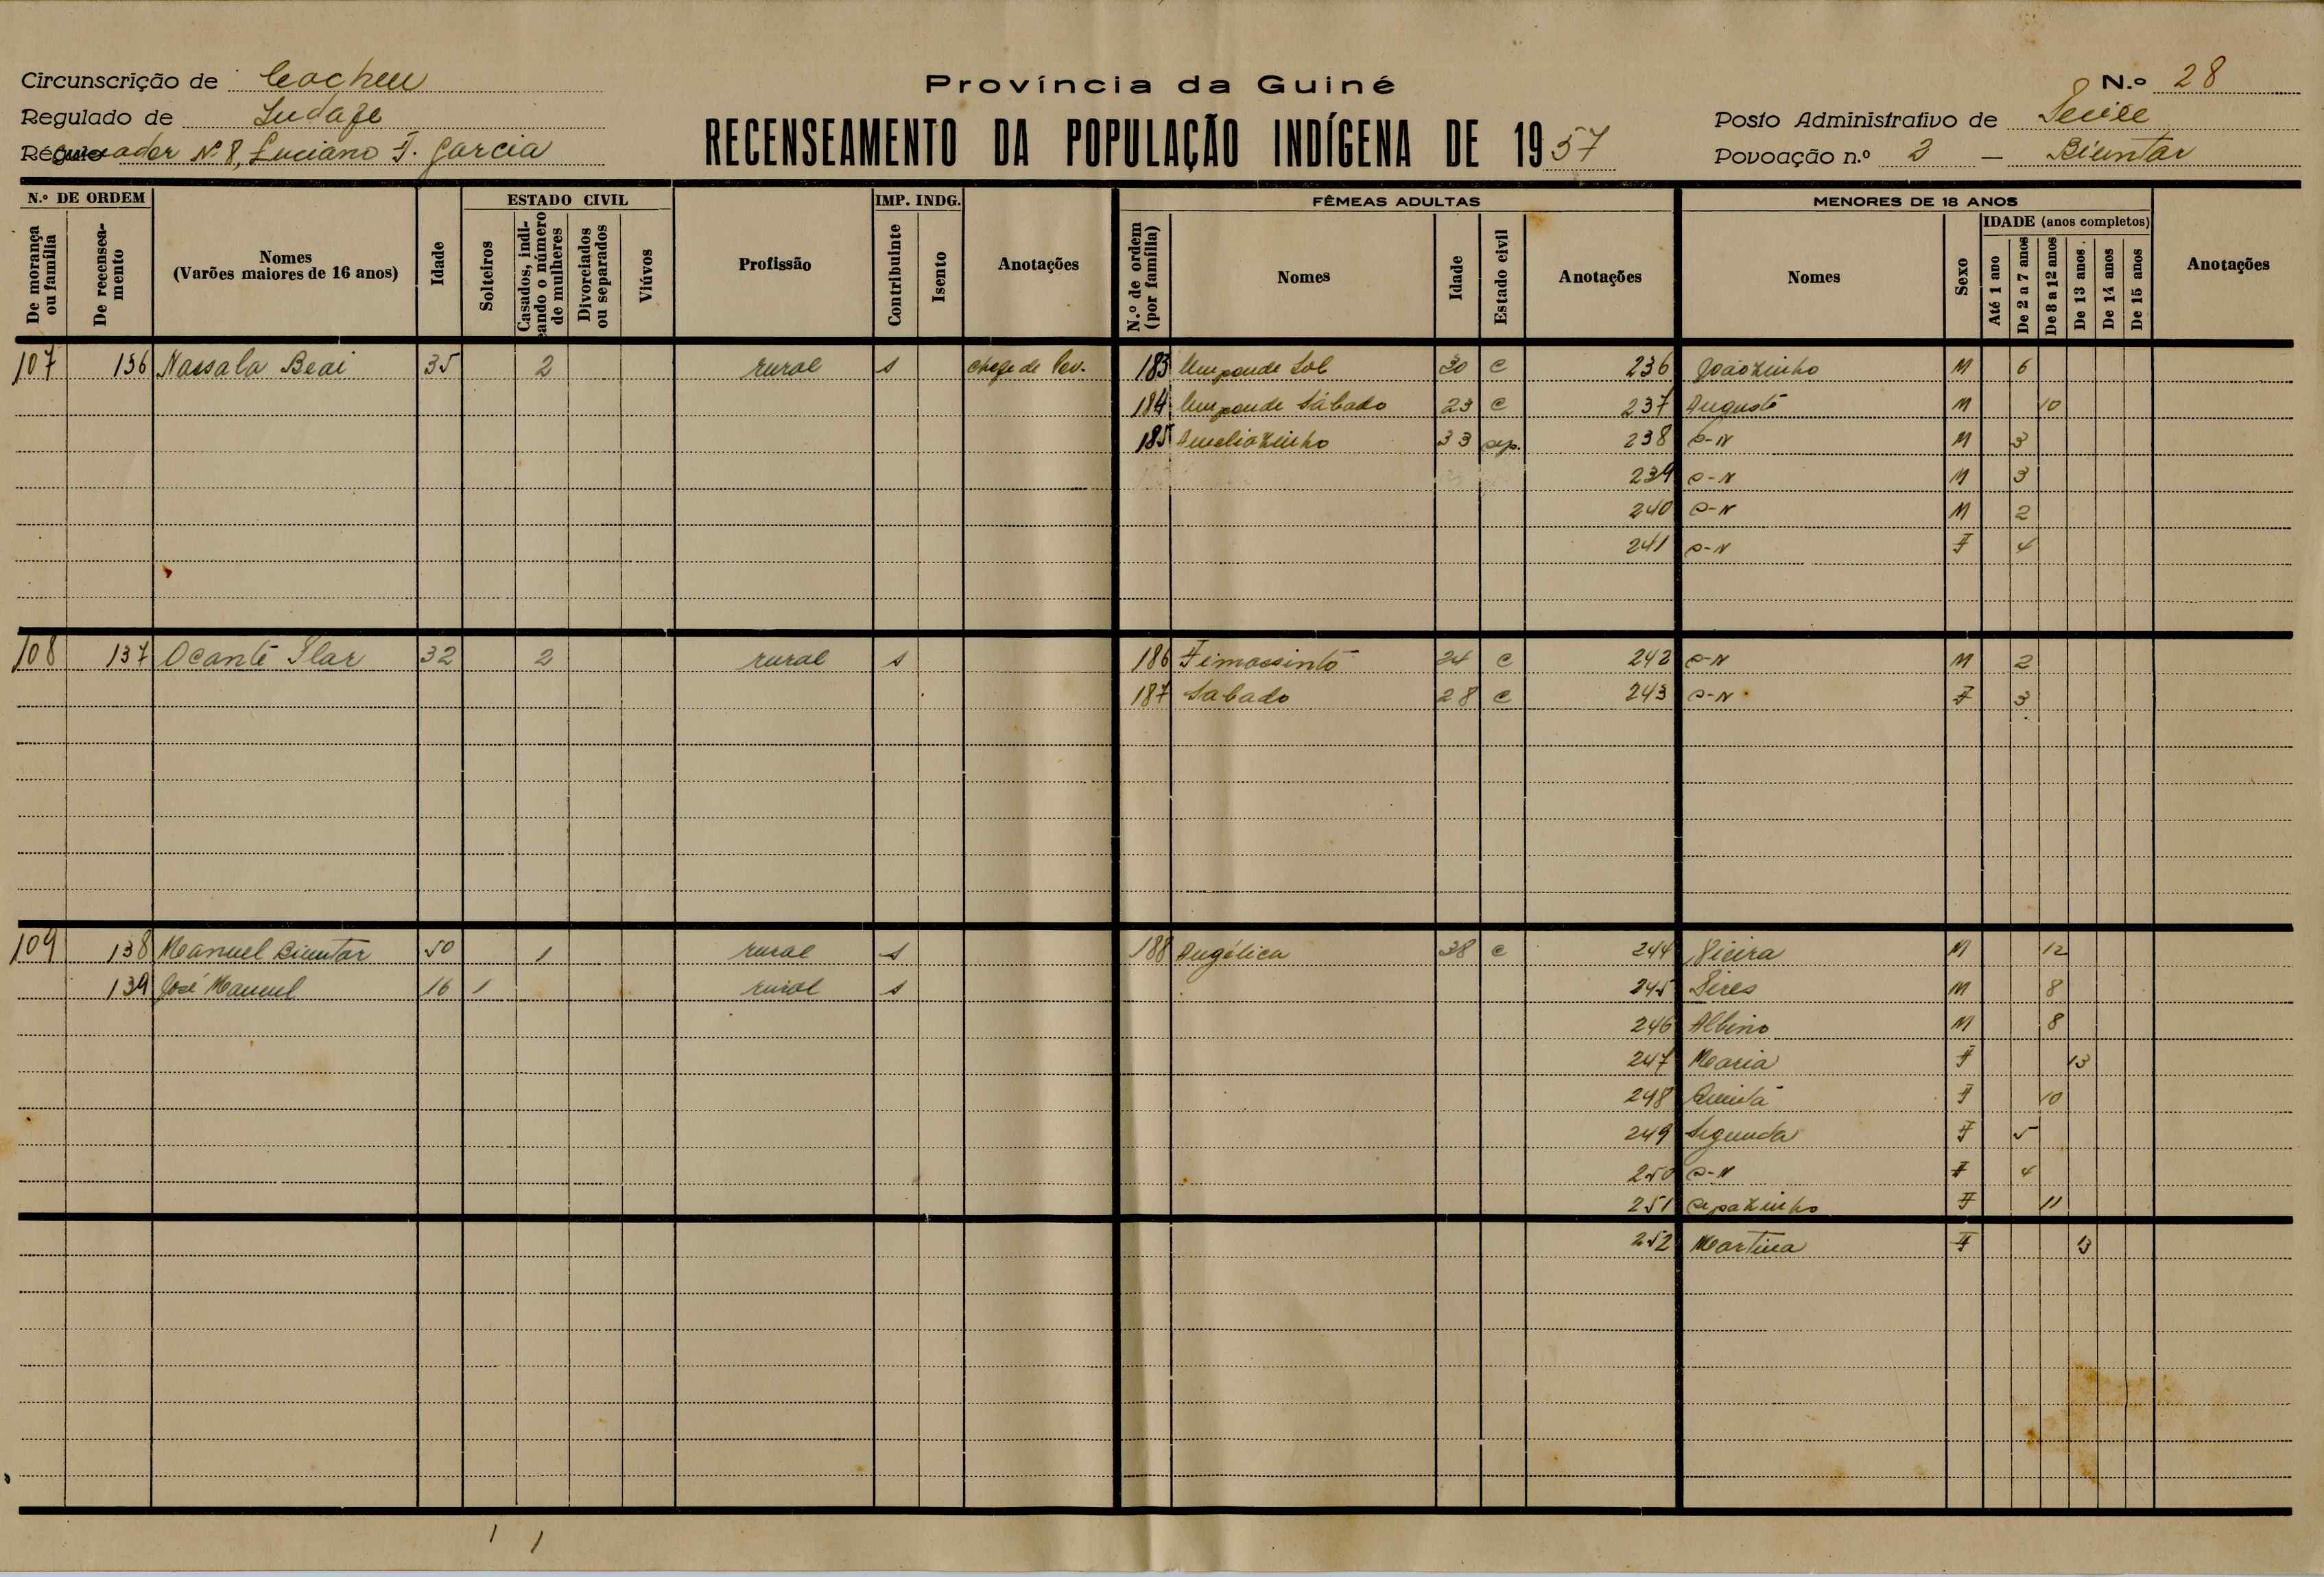 Circunscrição de Cacheu
Província da Guiné
N.º 28
Regulado de
RECENSEAMENTO DA POPULAÇÃO INDÍGENA DE 1957
Posto Administrativo de
Nº 8, Luciano F. Garcia
Povoação n.º 2 — Biuntar
N.º DE ORDEM
De morança ou família
De recenseamento
Nomes
(Varões maiores de 16 anos)
Idade
ESTADO CIVIL
Solteiros
Casados, indicando o número de mulheres
Divorciados ou separados
Viúvos
Profissão
IMP. INDG.
Contribuinte
Isento
Anotações
FÊMEAS ADULTAS
N.º de ordem (por família)
Nomes
Idade
Estado civil
Anotações
MENORES DE 18 ANOS
Nomes
Sexo
IDADE (anos completos)
Até 1 ano
De 2 a 7 anos
De 8 a 12 anos
De 13 anos
De 14 anos
De 15 anos
Anotações
107 136 Nassala Beai 35 2 rural s chefe de Pov. 183 30 c 236 Joãozinho M 6
184 Sábado 23 c 237 Augusto M 10
185 Ameliazinho 33 sep. 238 s-N M 3
239 s-N M 3
240 s-N M 2
241 s-N F 4
108 137 Ocante 32 2 rural s 186 24 c 242 s-N M 2
187 Sabado 28 c 243 s-N F 3
109 138 Manuel Biuntar 50 1 rural s 188 Angélica 38 c 244 M 12
139 José Manuel 16 1 rural s 245 M 8
246 Albino M 8
247 Maria F 13
248 Quintá F 10
249 Segunda F 5
250 s-N F 4
251 F 11
252 Martina F 13